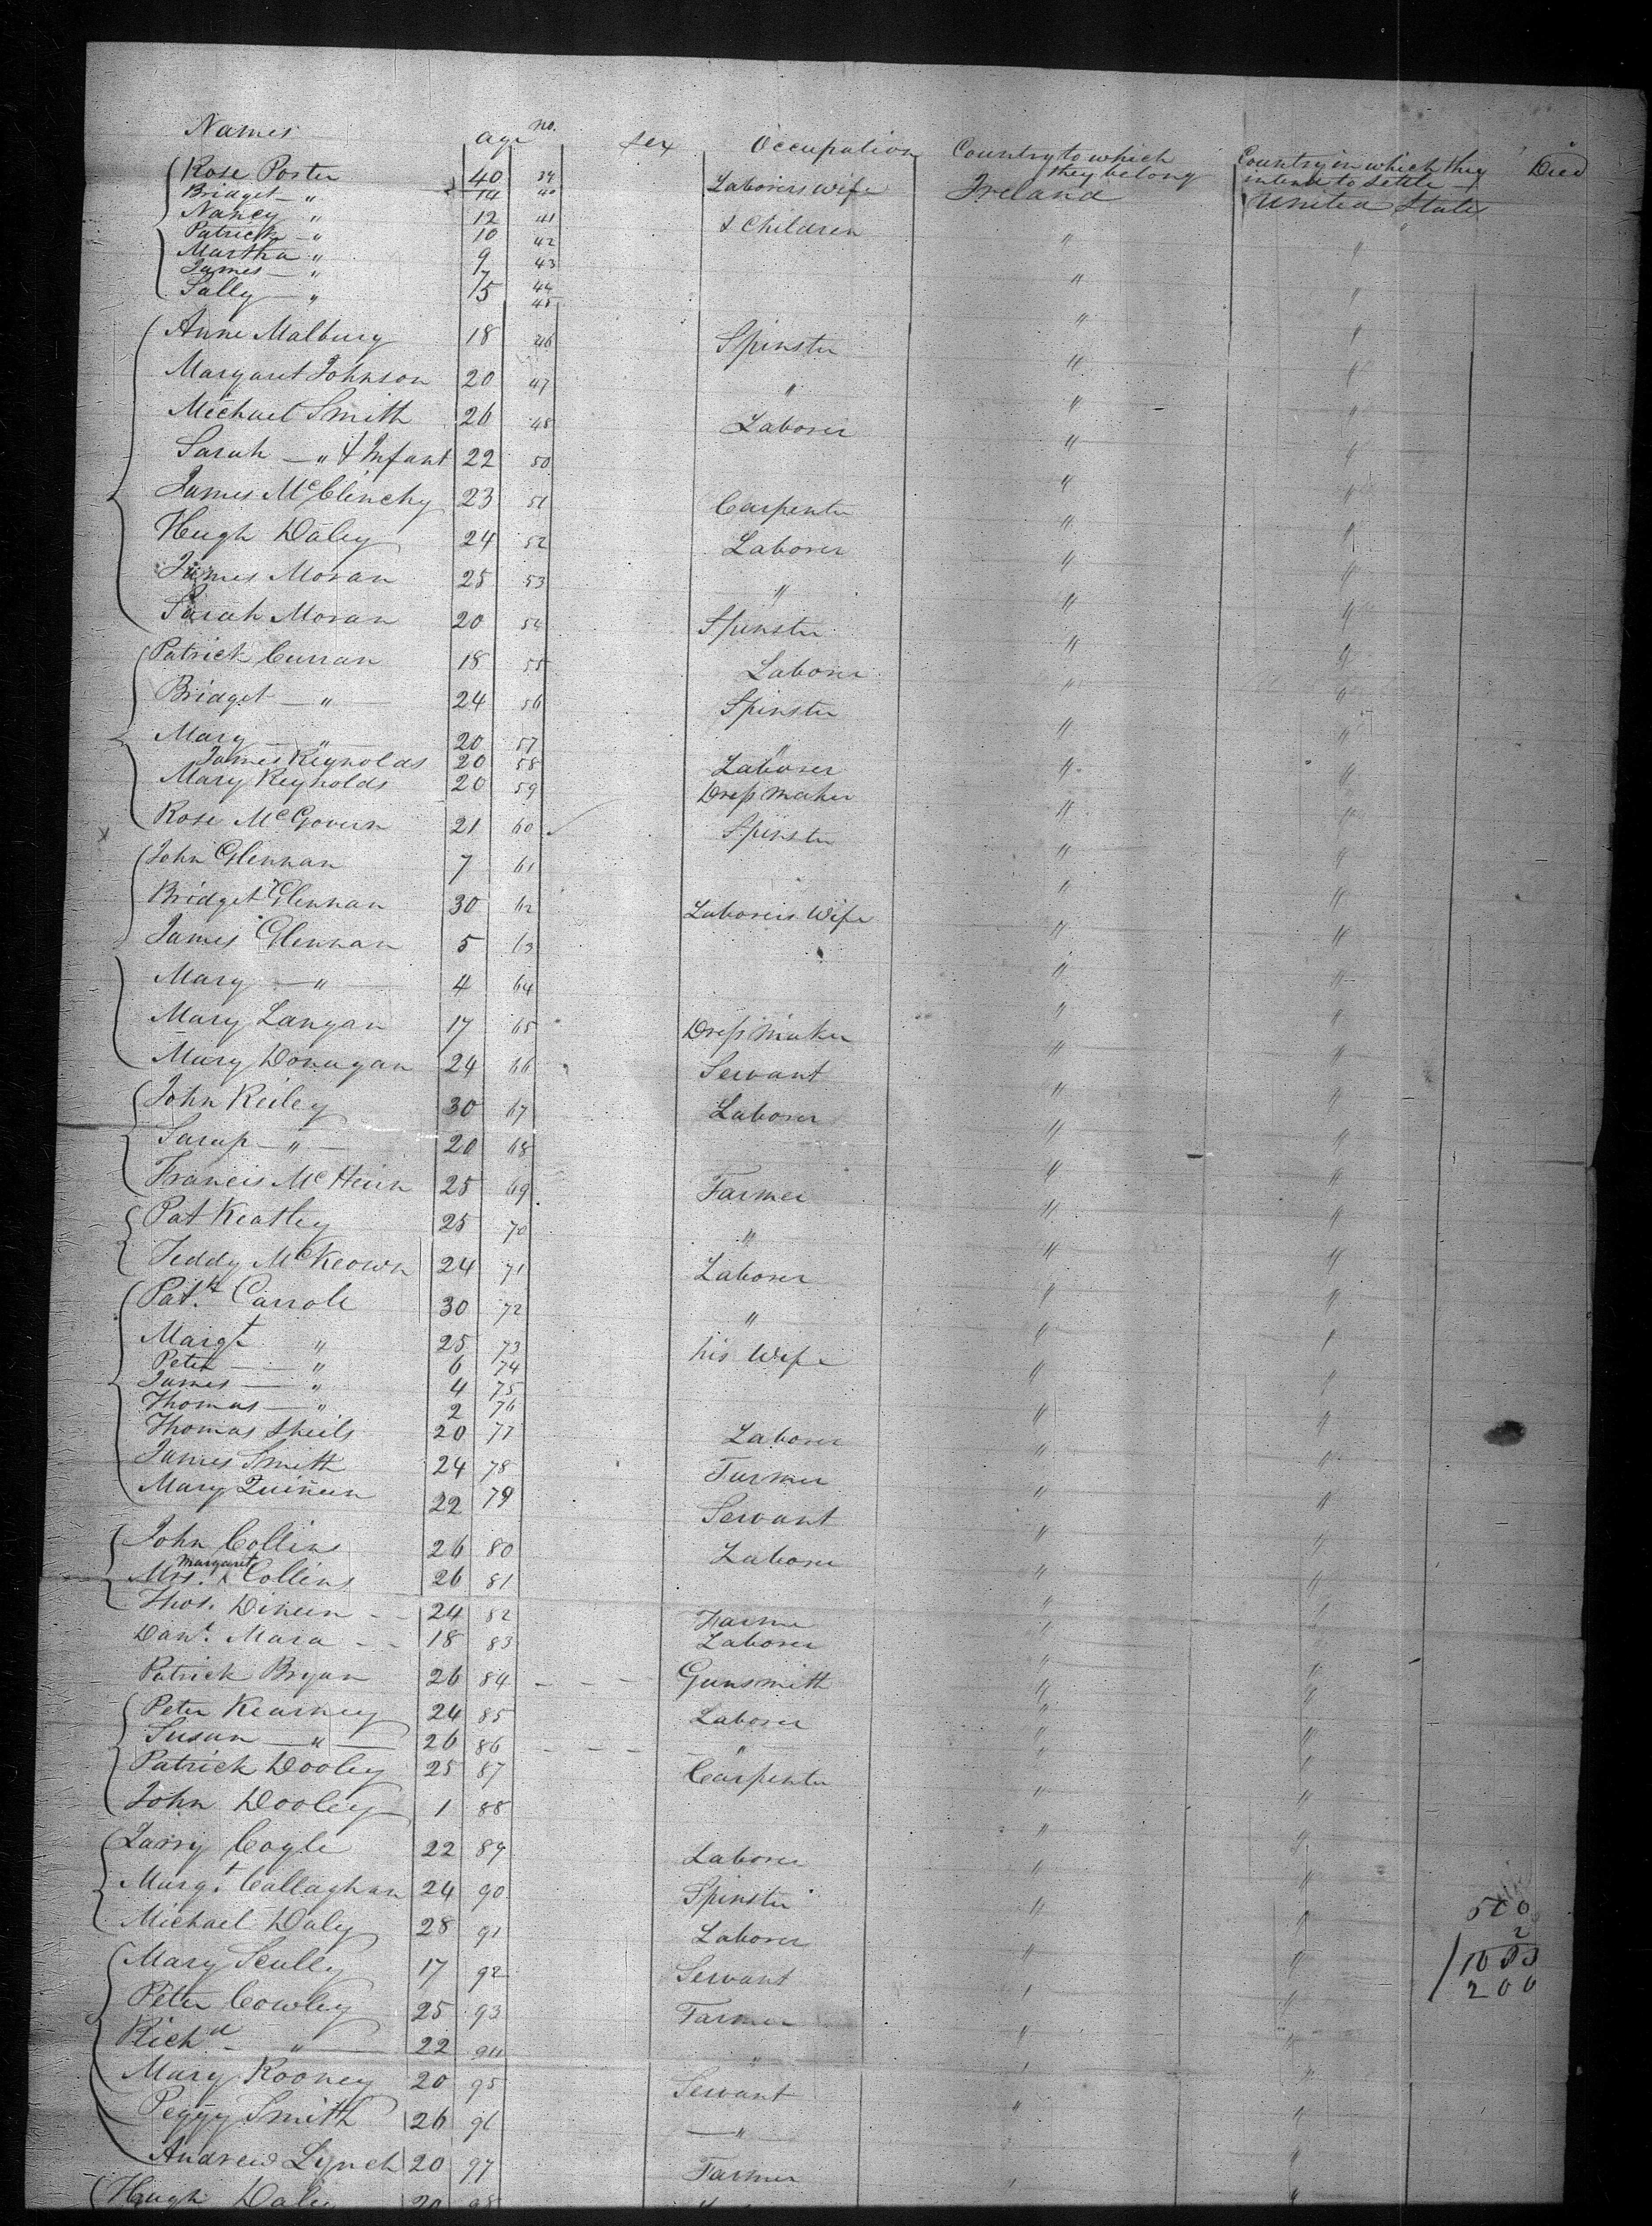 Names age no. Sex Occupation Country to which they belong Country in which they intend to settle Died
Rose Porter 40 39 Laborers wife Ireland United States
Bridget " 14 40
Nancy " 12 41 & Children " "
Patrick " 10 42
Martha " 9 43
James " 7 44 " "
Sally " 5 45
Anne Malburg 18 46 Spinster " "
Margaret Johnson 20 47 " " "
Michael Smith 26 48 Laborer " "
Sarah " & Infant 22 50 " "
James McClinchy 23 51 Carpenter " "
Hugh Daley 24 52 Laborer " "
James Moran 25 53 " " "
Sarah Moran 20 54 Spinster " "
Patrick Curran 18 55 Laborer " "
Bridget " 24 56 Spinster " "
Mary " 20 57 " " "
James Reynolds 20 58 Laborer " "
Mary Reynolds 20 59 Dress Maker " "
Rose McGovern 21 60 Spinster " "
John Glennan 7 61 " "
Bridget Glennan 30 62 Laborers Wife " "
James Glennan 5 63 " "
Mary " 4 64 " "
Mary Langan 17 65 Dress Maker " "
Mary Donagan 24 66 Servant " "
John Reiley 30 67 Laborer " "
Sarap " 20 68 " "
Francis McHein 25 69 Farmer " "
Pat Keatley 25 70 " " "
Teddy McKeown 24 71 Laborer " "
Patk. Carrole 30 72 " " "
Margt " 25 73 his Wife " "
Peter " 6 74
James " 4 75 " "
Thomas " 2 76
Thomas Sheils 20 77 Laborer " "
James Smith 24 78 Farmer " "
Mary Quineen 22 79 Servant " "
John Collins 26 80 Laborer " "
Mrs. Margaret Collins 26 81 " "
Thos. Dineen 24 82 Farmer " "
Danl. Mara 18 83 Laborer " "
Patrick Bryan 26 84 Gunsmith " "
Peter Kearney 24 85 Laborer " "
Susan " 26 86 " " "
Patrick Dooley 25 87 Carpenter " "
John Dooley 1 88 " "
Larry Cogle 22 89 Laborer " "
Margt. Callaghan 24 90 Spinster " "
Michael Daly 28 91 Laborer " "
2
200
Mary Scully 17 92 Servant " "
Peter Cowley 25 93 Farmer " "
Richd " 22 94 " " "
Mary Rooney 20 95 Servant " "
Peggy Smith 26 96 " " "
Andrew Lynch 20 97 Farmer " "
Hugh Daley 20 98